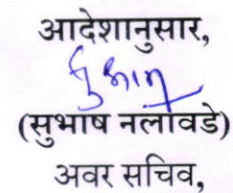 आदेशानुसार,
(सुभाष नलावडे)
अवर सचिव,